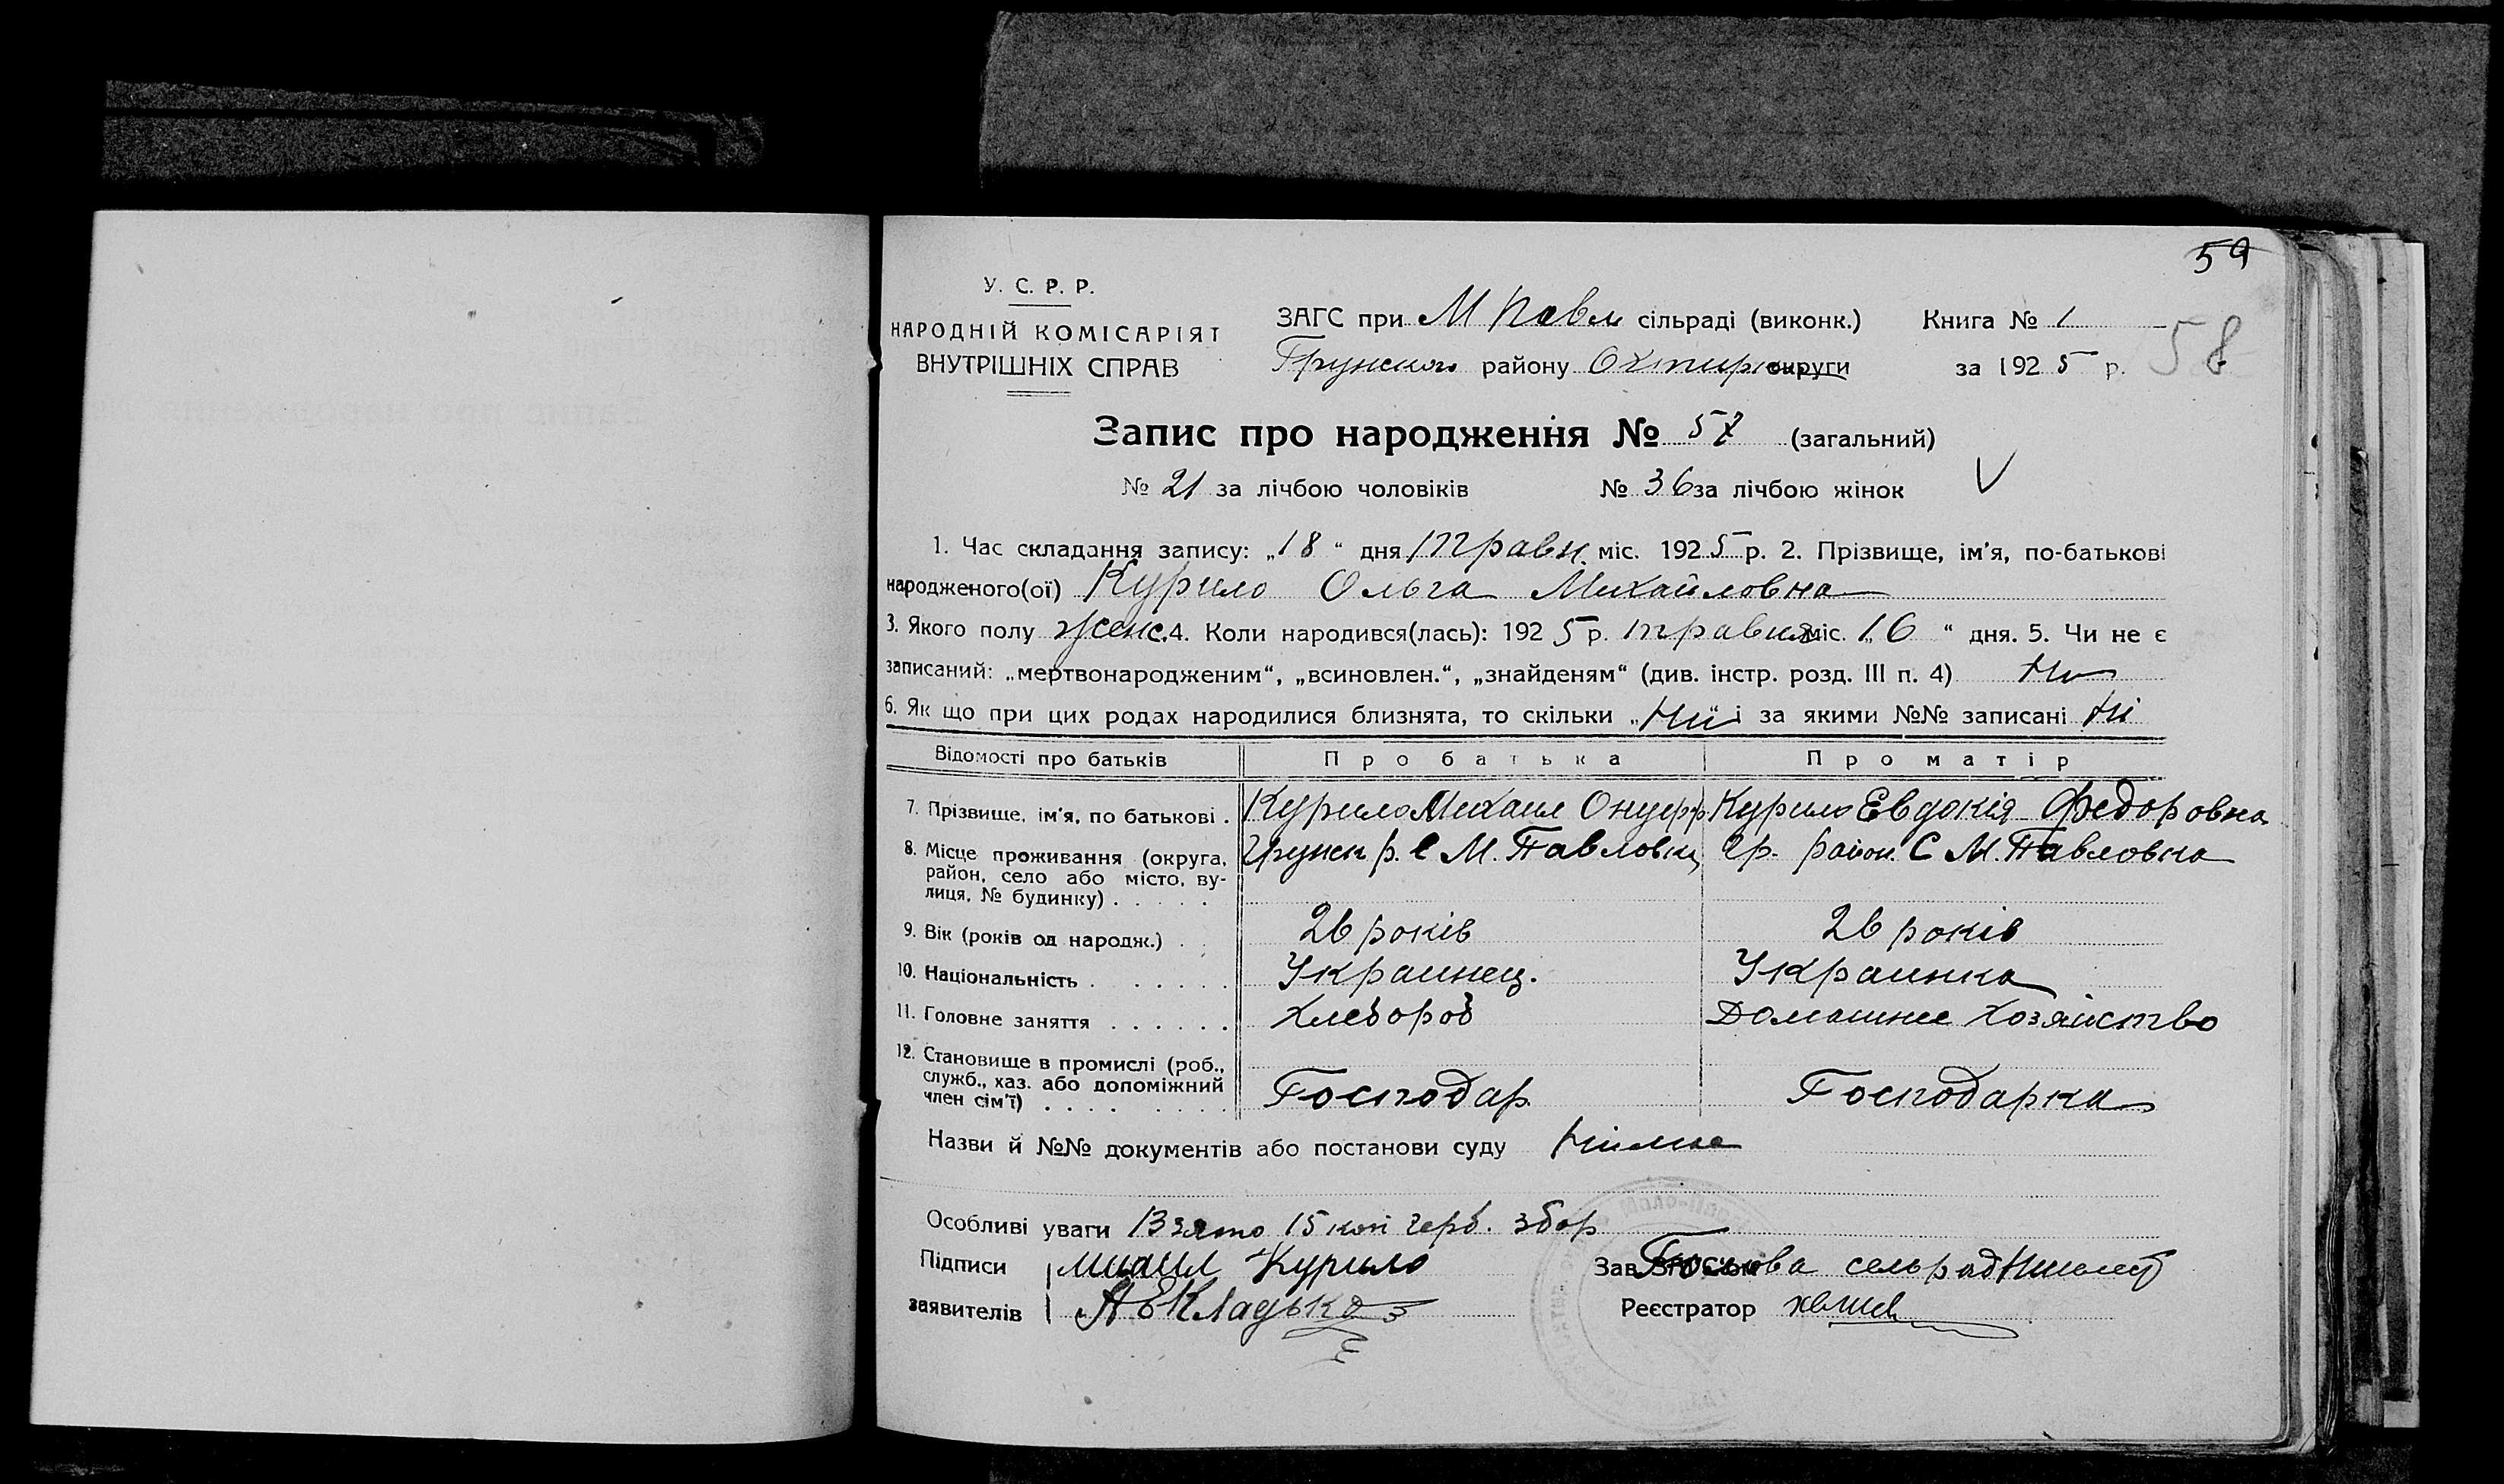 59
У. С. Р. Р.
НАРОДНІЙ КОМІСАРІЯТ
ВНУТРІШНІХ СПРАВ
ЗАГС при М Павл сільраді (виконк.) Книга № 1
58
Грунского району Охтир округи за 1925 р.
Запис про народження № 57 (загальний)
№ 21 за лічбою чоловіків № 36 за лічбою жінок V
1. Час складання запису: „18“ дня травн міс. 1925 р. 2. Прізвище, ім'я, по-батькові
народженого(ої) Курило Ольга Михайловна
3. Якого полу женс. 4. Коли народився(лась): 1925 р. травня міс. „16“ дня. 5. Чи не є
записаний: „мертвонародженим“, „всиновлен.“, „знайденям“ (див. інстр. розд. III п. 4) Ни
6. Як що при цих родах народилися близнята, то скільки „Ни“ і за якими №№ записані Ні
Відомості про батьків Про батька Про матір
7. Прізвище, ім'я, по батькові . Курило Михаил Онуфр Курило Евдокія Федоровна
8. Місце проживання (округа, район, село або місто, вулиця, № будинку) . . . . . Грунск р. С М. Павловка Гр. район. С М. Павловка
9. Вік (років од народж.) . . 26 років 26 років
10. Національність . . . . . . Украинец. Украинка
11. Головне заняття . . . . . . Хлебороб Домашнее хозяйство
12. Становище в промислі (роб., служб., хаз. або допоміжний член сім'ї) . . . . . . . . Господар Господарка
Назви й №№ документів або постанови суду Нима
Особливі уваги Взято 15 коп герб. збор
Підписи Михаил Курило Зав. ЗАГСом Голова сельрад
заявителів А Е Кладько Реєстратор